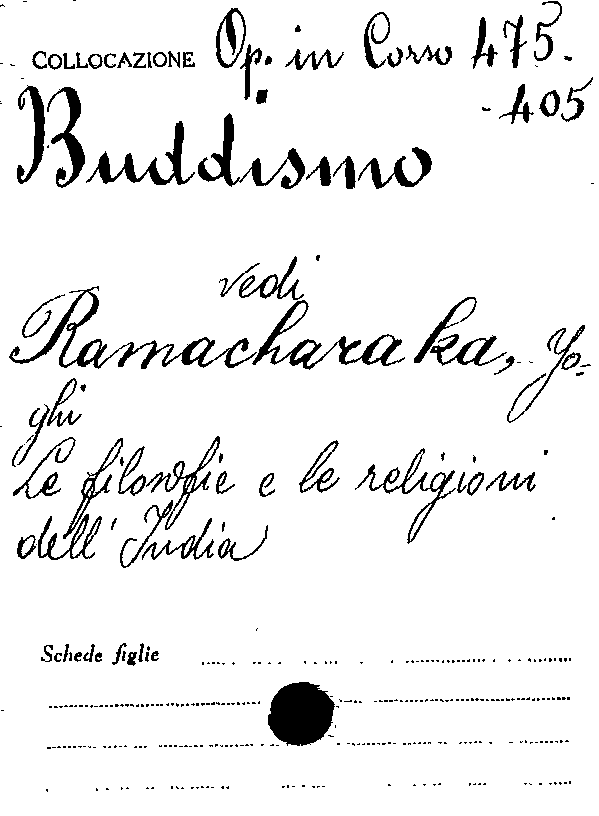 COLLOCAZIONE Op. in Corso 475.
- 405
Buddismo
vedi
Ramacharaka, Yo-
ghi
Le filosofie e le religioni
dell'India
Schede figlie